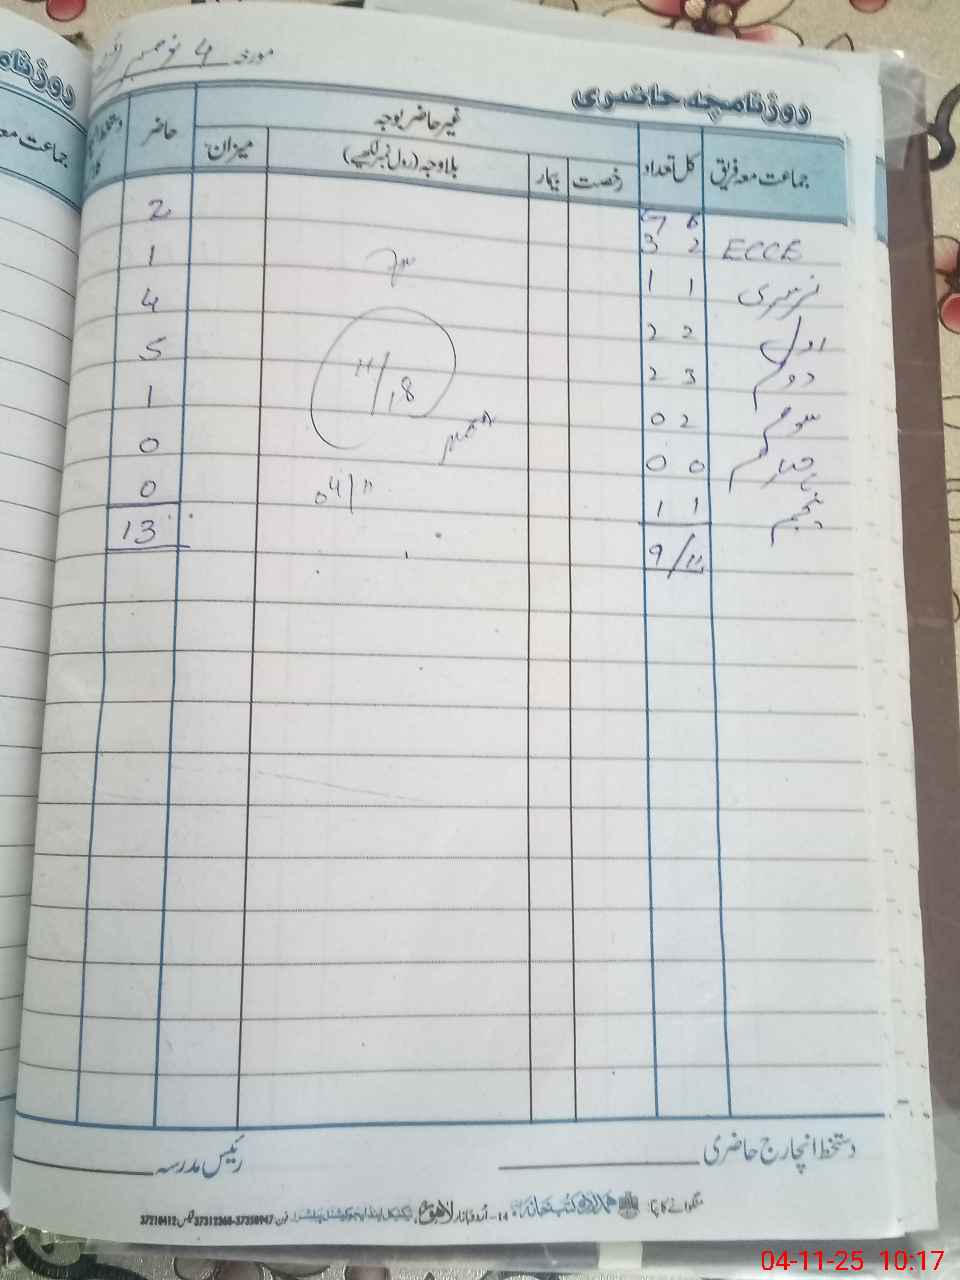 مورخہ 4 نومبر
روزنامچہ حاضری
جماعت معہ فریق کل تعداد غیر حاضر بوجہ حاضر
رخصت بیمار بلاوجہ (رول نمبر لکھیے) میزان
G B
ECCE 3 2 2
نرسری 1 1 1
اول 2 2 4
دوم 2 3 5
سوم 0 2 1
چہارم 0 0 0
پنجم 1 1 0
9/11 13
11/18
04/11
دستخط انچارج حاضری
رئیس مدرسہ
منگوانے کا پتا: ہمدرد کتب خانہ 14-اردو بازار لاہور فون 37358947-37312368 فیکس 37210412
روزنامچہ
جماعت معہ
04-11-25 10:17